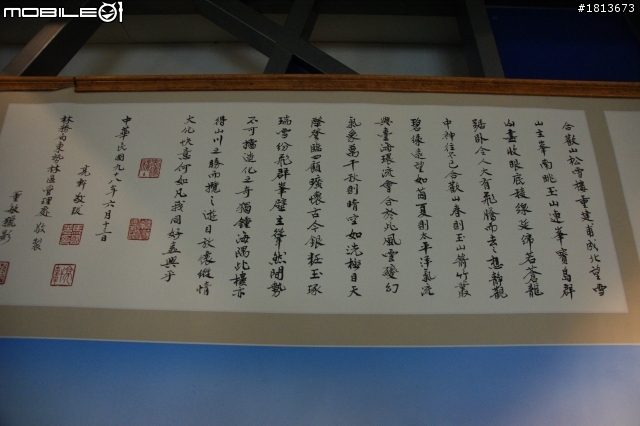 MOBILE01
#1813673
合歡山松雪樓重建甫成北望雪
山主峯南眺玉山連峯寶島群
山盡收眼底稜線延綿若蒼龍
踞臥令人大有飛騰而去之想靜觀
中神往不已合歡山春則玉山箭竹叢
碧綠遠望如茵夏則太平洋氣流
與臺海環流會合於此風雲變幻
氣象萬千秋則晴空如洗極目天
際登臨四顧曠懷古今銀粧玉琢
瑞雪紛飛群峯壁立聳然開勢
不可擋造化之奇獨鍾海隅此樓亦
得山川之勝而攬之遊目放懷縱情
文化快意何如凡我同好盍興乎
中華民國九八年六月十二日
亮新敬敬
林務局東勢林區管理處 敬製
董敏攝影